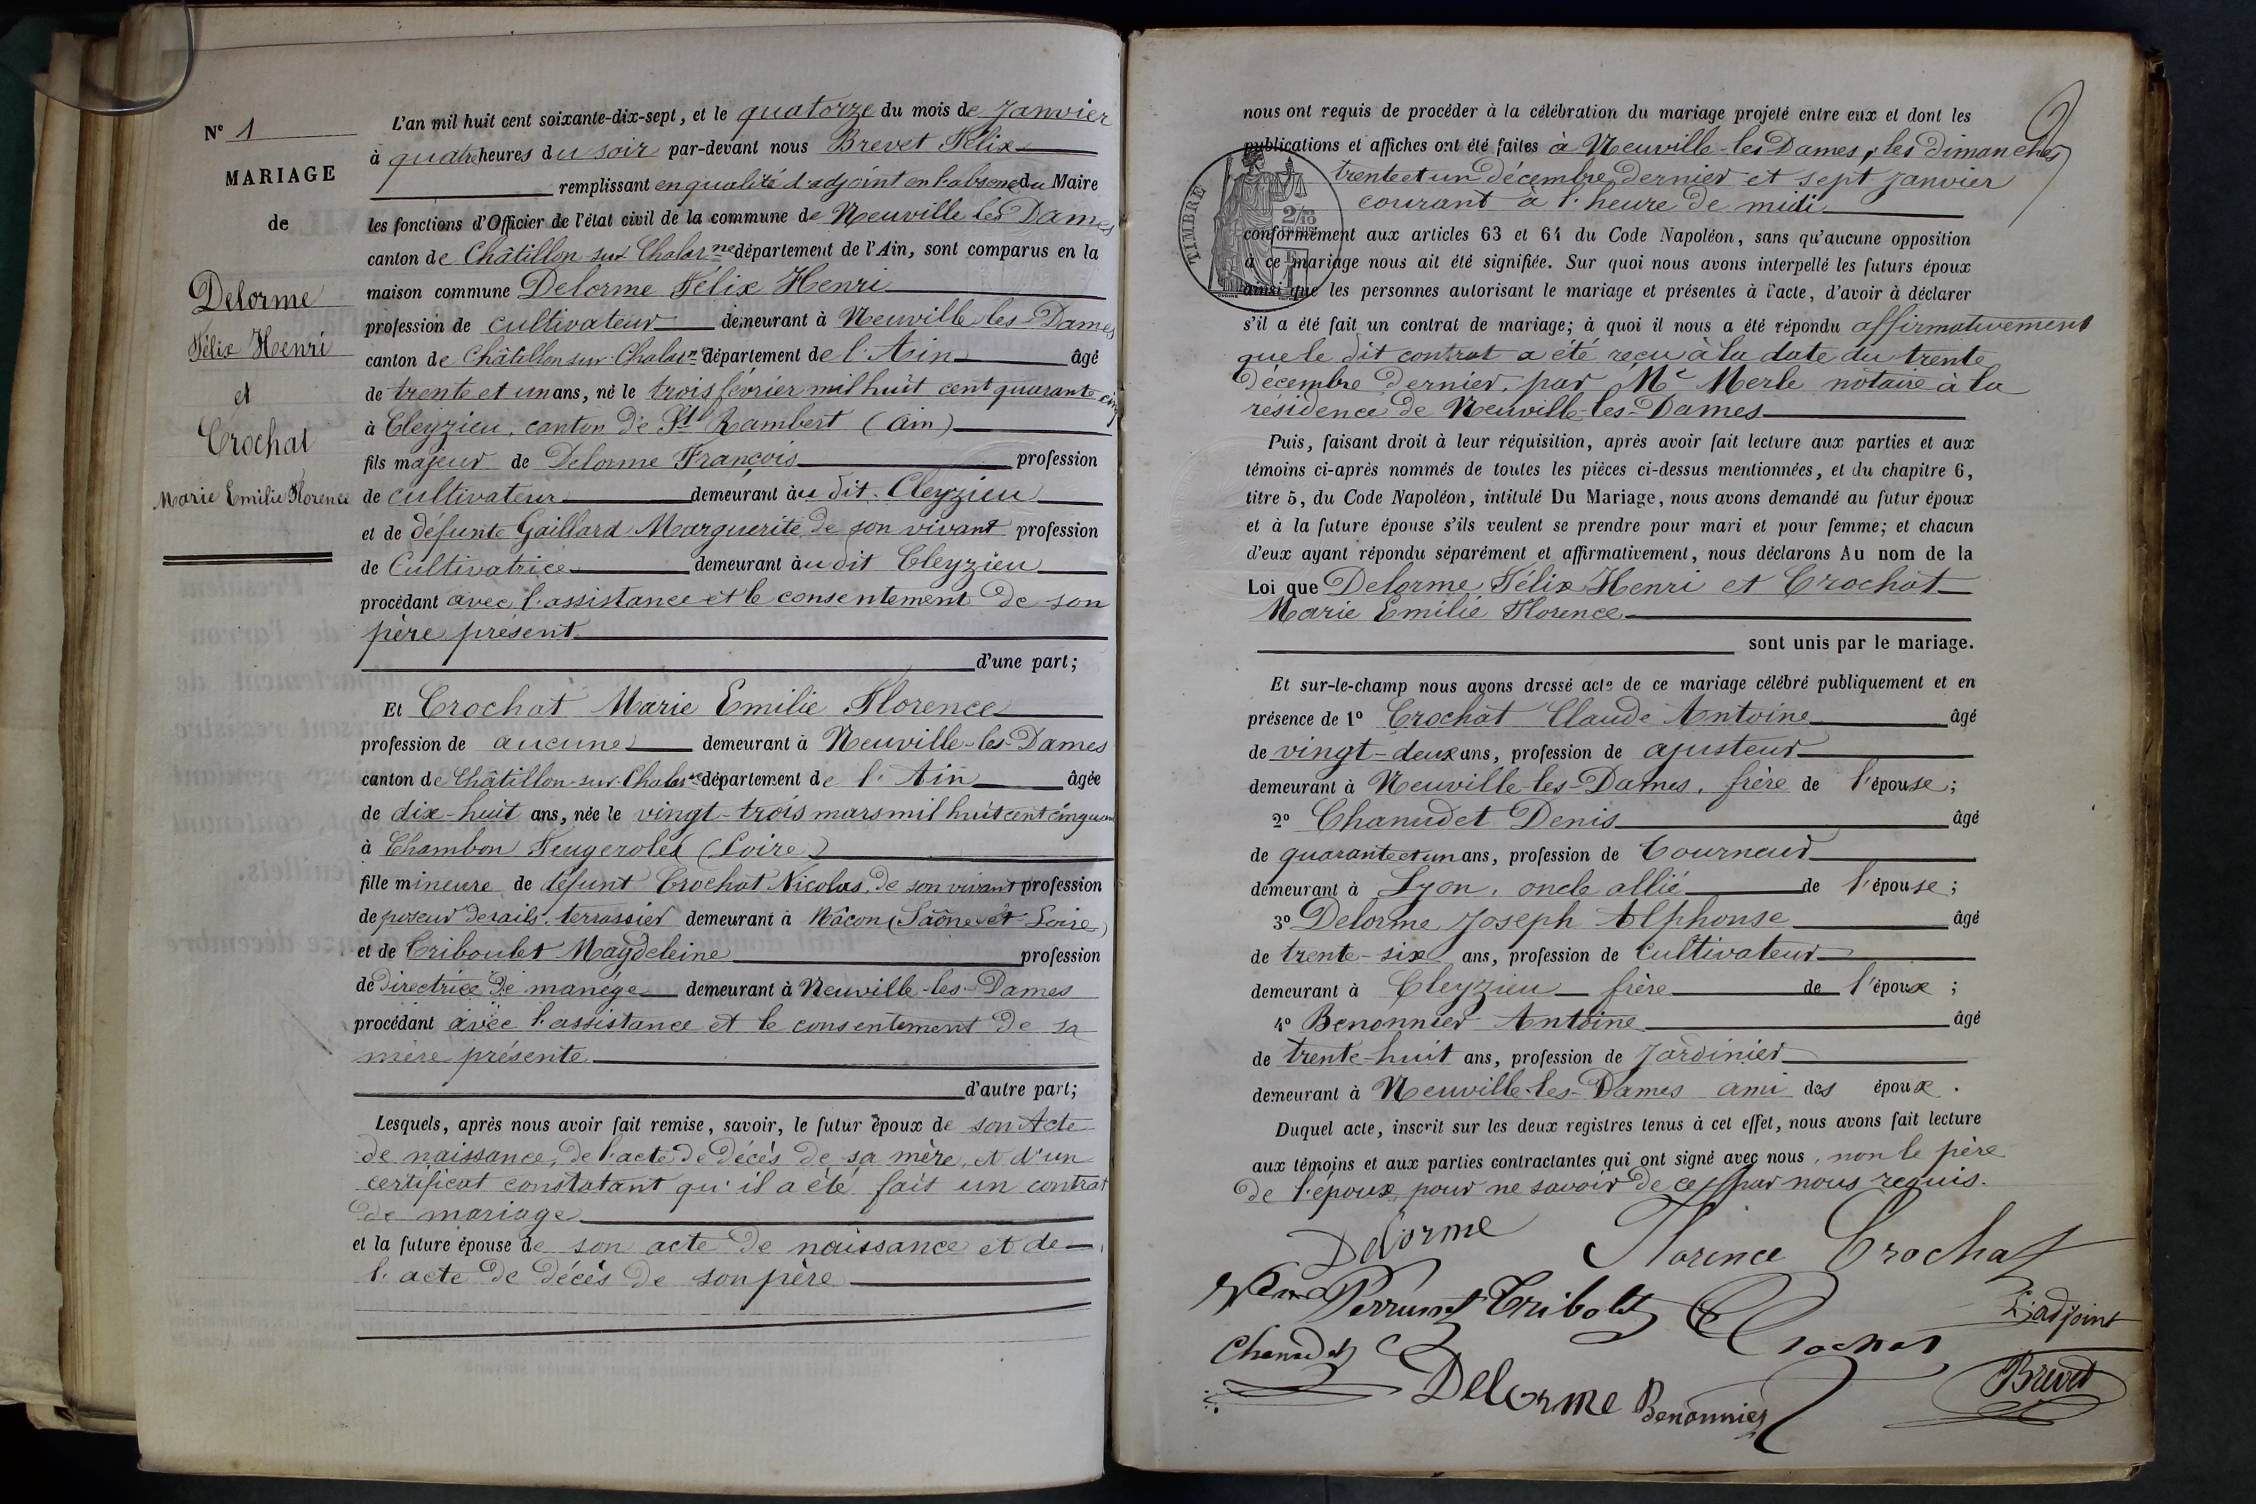 N° 1
MARIAGE
de
Delorme
Félix Henri
et
Crochat
Marie Emilie Florence
L'an mil huit cent soixante-dix-sept, et le quatorze du mois de Janvier
à quatre heures du soir par-devant nous Brevet Félix
remplissant en qualité d'adjoint en l'absence du Maire
les fonctions d'Officier de l'état civil de la commune de Neuville les Dames
canton de Châtillon sur Chalarne département de l'Ain, sont comparus en la
maison commune Delorme Félix Henri
profession de cultivateur demeurant à Neuville-les-Dames
canton de Châtillon sur Chalarne département de l'Ain âgé
de trente et un ans, né le trois février mil huit cent quarante cinq
à Cleyzieu, canton de St Rambert (Ain)
fils majeur de Delorme François profession
de cultivateur demeurant àu dit Cleyzieu
et de défunte Gaillard Marguerite de son vivant profession
de Cultivatrice demeurant àu dit Cleyzieu
procédant avec l'assistance et le consentement de son
père présent
d'une part;
Et Crochat Marie Emilie Florence
profession de aucune demeurant à Neuville-les-Dames
canton de Châtillon-sur-Chalarne département de l'Ain âgée
de dix-huit ans, née le vingt-trois mars mil huit cent cinquan
à Chambon Feugeroles (Loire)
fille mineure de défunt Crochat Nicolas, de son vivant profession
de poseur de rails, terrassier demeurant à Mâcon (Saône-et-Loire)
et de Triboulet Magdeleine profession
de Directrice de manège demeurant à Neuville-les-Dames
procédant avec l'assistance et le consentement de sa
mère présente
d'autre part;
Lesquels, après nous avoir fait remise, savoir, le futur époux de son Acte
de naissance, de l'acte de décès de sa mère, et d'un
certificat constatant qu'il a été fait un contrat
de mariage
et la future épouse de son acte de naissance et de
l'acte de décès de son père
nous ont requis de procéder à la célébration du mariage projeté entre eux et dont les
publications et affiches ont été faites à Neuville-les-Dames, les dimanches
trente et un décembre dernier et sept janvier
courant à l'heure de midi
TIMBRE
2/10
conformément aux articles 63 et 64 du Code Napoléon, sans qu'aucune opposition
à ce mariage nous ait été signifiée. Sur quoi nous avons interpellé les futurs époux
ainsi que les personnes autorisant le mariage et présentes à l'acte, d'avoir à déclarer
s'il a été fait un contrat de mariage; à quoi il nous a été répondu affirmativement
que le dit contrat a été reçu à la date du trente
décembre dernier, par Me Merle notaire à la
résidence de Neuville-les-Dames
Puis, faisant droit à leur réquisition, après avoir fait lecture aux parties et aux
témoins ci-après nommés de toutes les pièces ci-dessus mentionnées, et du chapitre 6,
titre 5, du Code Napoléon, intitulé Du Mariage, nous avons demandé au futur époux
et à la future épouse s'ils veulent se prendre pour mari et pour femme; et chacun
d'eux ayant répondu séparément et affirmativement, nous déclarons Au nom de la
Loi que Delorme Félix Henri et Crochat
Marie Emilie Florence
sont unis par le mariage.
Et sur-le-champ nous avons dressé acte de ce mariage célébré publiquement et en
présence de 1° Crochat Claude Antoine âgé
de vingt-deux ans, profession de ajusteur
demeurant à Neuville-les-Dames, frère de l'épouse;
2° Chanudet Denis âgé
de quarante et un ans, profession de Tourneur
demeurant à Lyon, oncle allié de l'épouse;
3° Delorme Joseph Alphonse âgé
de trente-six ans, profession de cultivateur
demeurant à Cleyzieu frère de l'époux;
4° Benonnier Antoine âgé
de trente-huit ans, profession de Jardinier
demeurant à Neuville-les-Dames ami des époux.
Duquel acte, inscrit sur les deux registres tenus à cet effet, nous avons fait lecture
aux témoins et aux parties contractantes qui ont signé avec nous, non le père
de l'époux pour ne savoir de ce par nous requis.
Delorme Florence Crochat
Tribolet Crochat L'adjoint
Delorme Benonnier Brevet